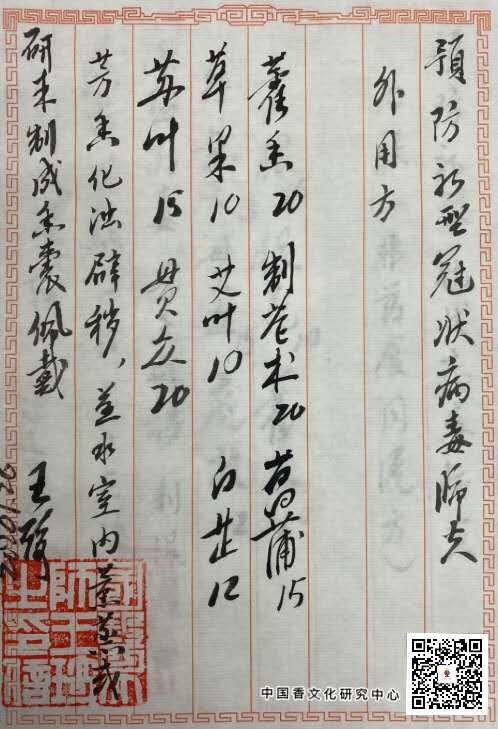 预防新型冠状病毒肺炎
外用方
藿香20 制苍术20 菖蒲15
草果10 艾叶10 白芷12
苏叶15 贯众20
芳香化浊辟秽，煎水室内熏蒸或
研末制成香囊佩戴 王琦
2020.1.26
中国香文化研究中心